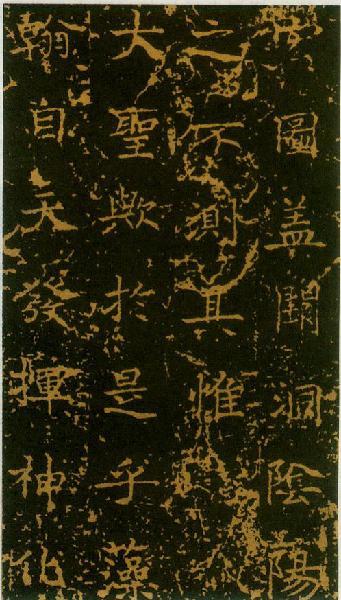 圖盖闢洞陰陽
之不測其惟
大聖歟於是乎藻
翰自天發揮神化